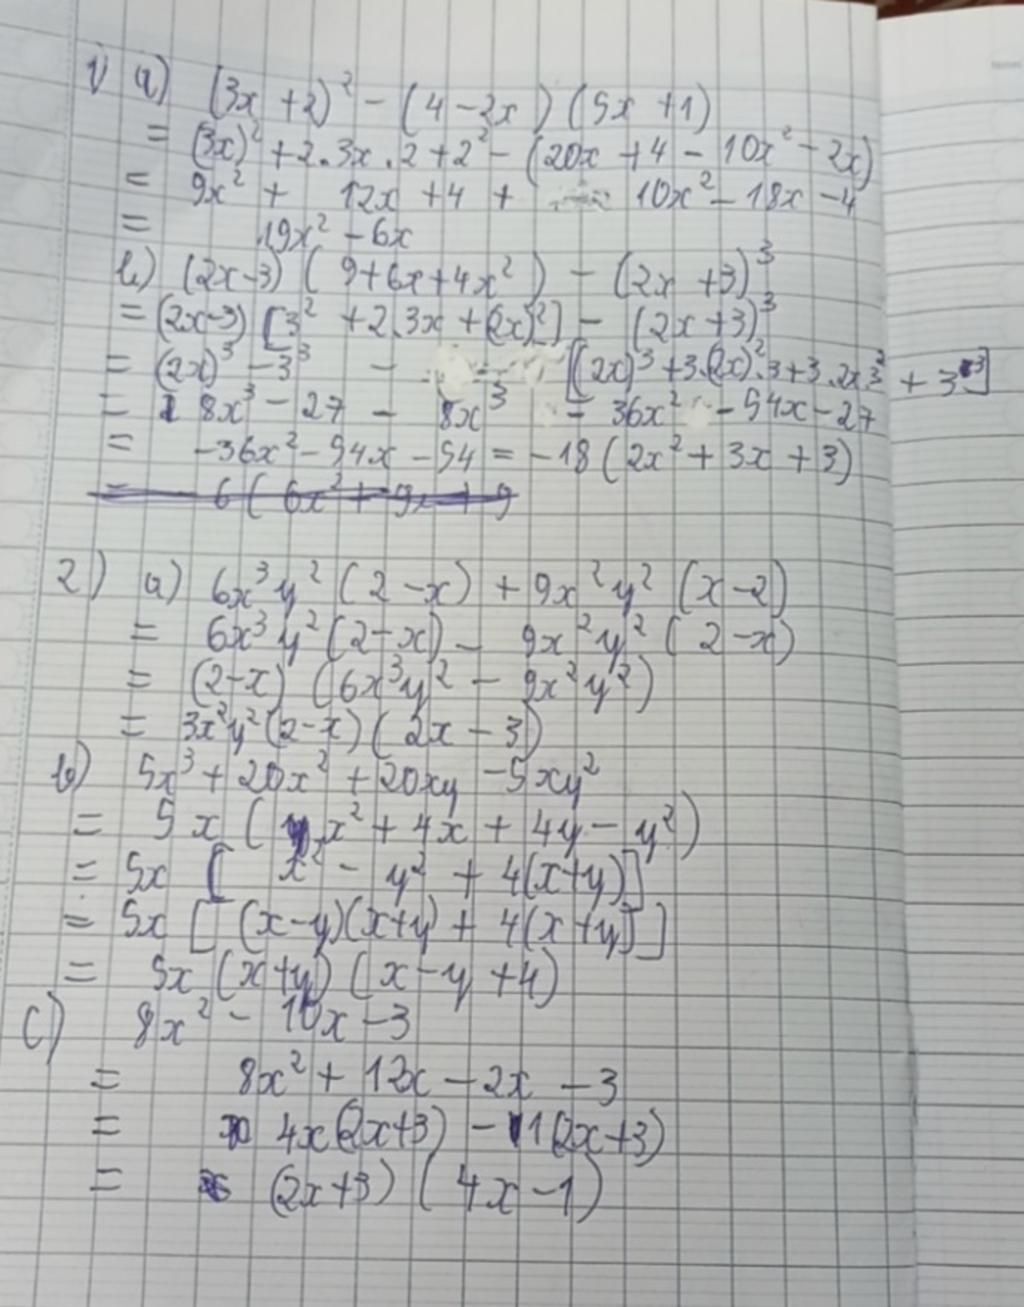 1) a) (3x + 2)² - (4 - 2x) (5x + 1)
= (3x)² + 2.3x.2 + 2² - (20x + 4 - 10x² - 2x)
= 9x² + 12x + 4 + 10x² - 18x - 4
= 19x² - 6x
b) (2x-3) (9+6x+4x²) - (2x +3)³
= (2x-3) [3² + 2.3x + (2x)²] - (2x+3)³
= (2x)³ - 3³ - [(2x)³ + 3.(2x)².3 + 3.2x.3² + 3³]
= 8x³ - 27 - 8x³ - 36x² - 54x - 27
= -36x² - 54x - 54 = -18 (2x² + 3x + 3)
= 6 ( 6x² + 9x + 9
2) a) 6x³y² (2 - x) + 9x²y² (x - 2)
= 6x³y² (2 - x) - 9x²y² (2 - x)
= (2-x) (6x³y² - 9x²y²)
= 3x²y² (2-x) (2x - 3)
b) 5x³ + 20x² + 20xy - 5xy²
= 5x (x² + 4x + 4y - y²)
= 5x [x² - y² + 4(x+y)]
= 5x [(x-y)(x+y) + 4(x+y)]
= 5x (x+y) (x - y + 4)
c) 8x² - 10x - 3
= 8x² + 12x - 2x - 3
= 4x(2x+3) - 1(2x+3)
= (2x+3) (4x - 1)